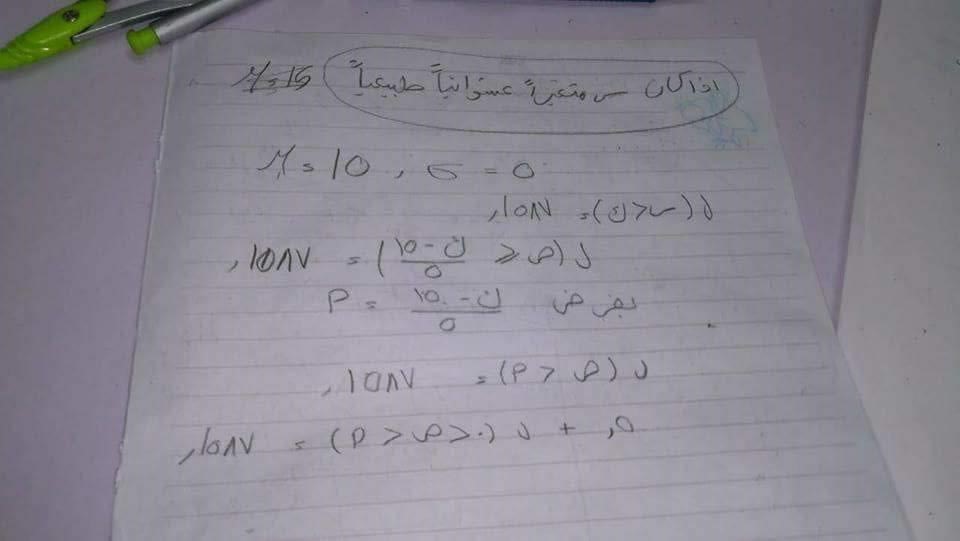 اذا كان س متغيراً عشوائياً طبيعياً
μ = ١٥ , σ = ٥
ل (س < ك) = ,١٥٨٧
ل (ص ≤ (ك - ١٥)/٥) = ,١٥٨٧
بفرض (ك - ١٥)/٥ = م
ل (ص < م) = ,١٥٨٧
,٥ + ل (٠ < ص < م) = ,١٥٨٧